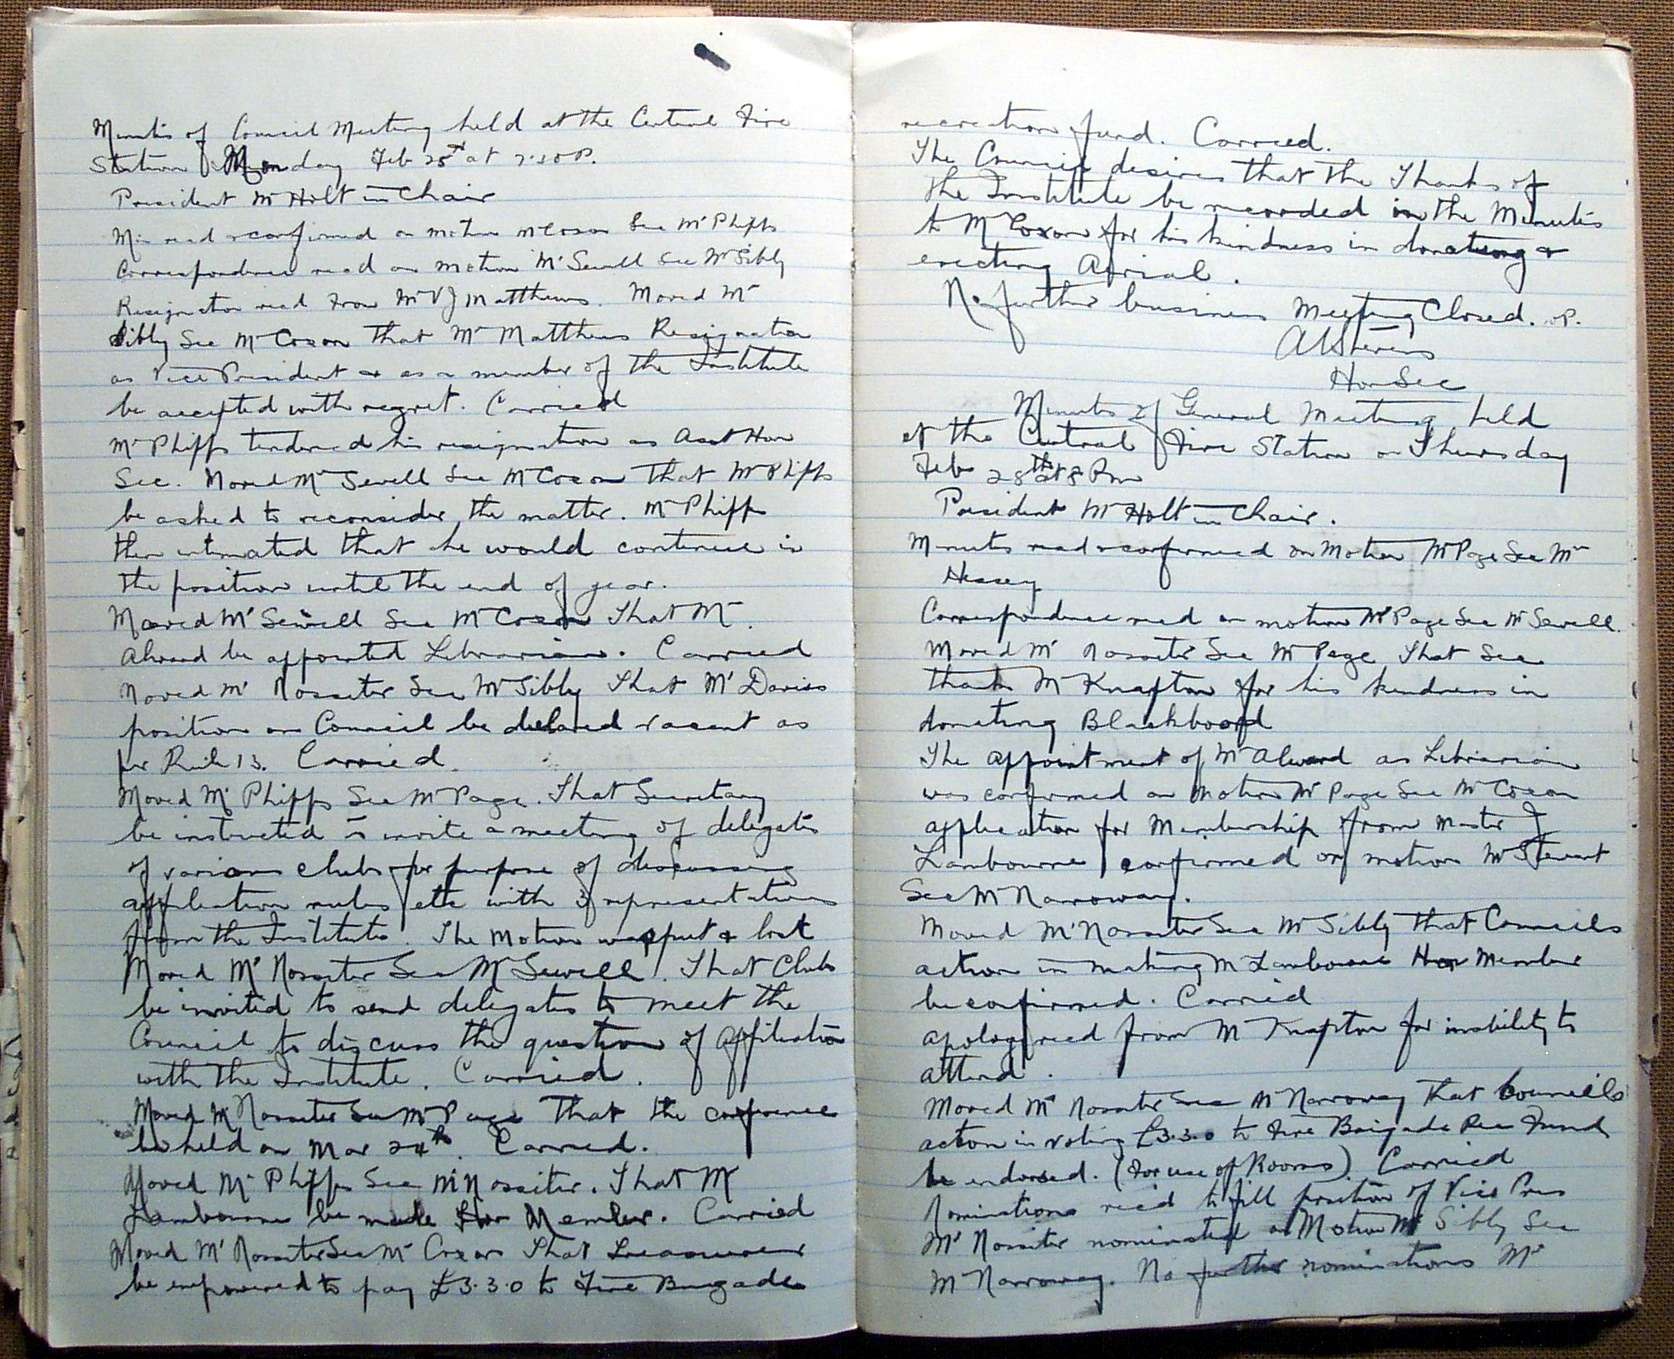 Minutes of Council Meeting held at the Central Fire
Station Monday Feb 25th at 7.30 P.
President Mr Holt in Chair
Min read & confirmed on motion Mr Coxon Sec Mr Phipps
Correspondence read on motion Mr Sewell Sec Mr Sibly
Resignation read from Mr V J Matthews. Moved Mr
Sibly Sec Mr Coxon That Mr Matthews Resignation
as Vice President & as a member of the Institute
be accepted with regret. Carried
Mr Phipps tendered his resignation as Asst Hon
Sec. Moved Mr Sewell Sec Mr Coxon That Mr Phipps
be asked to reconsider the matter. Mr Phipps
then intimated that he would continue in
the position until the end of year.
Moved Mr Sewell Sec Mr Coxon That Mr
Alward be appointed Librarian. Carried
Moved Mr Rossiter Sec Mr Sibly That Mr Davies
position on Council be declared vacant as
per Rule 13. Carried.
Moved Mr Phipps Sec Mr Page. That Secretary
be instructed to invite a meeting of delegates
of various clubs for purpose of discussing
affiliation rules etc with 3 representatives
from the Institute. The Motion was put & lost
Moved Mr Rossiter Sec Mr Sewell. That Clubs
be invited to send delegates to meet the
Council to discuss the question of affiliation
with the Institute. Carried.
Moved Mr Rossiter Sec Mr Page That the conference
be held on Mar 24th. Carried.
Moved Mr Phipps Sec Mr Rossiter. That Mr
Lambourne be made Hon Member. Carried
Moved Mr Rossiter Sec Mr Coxon That Treasurer
be empowered to pay £3.3.0 to Fire Brigades
recreation fund. Carried.
The Council desires that the Thanks of
the Institute be recorded in the Minutes
to Mr Coxon for his kindness in donating &
erecting Aerial.
No further business Meeting Closed.
A W Stevens
Hon Sec
Minutes of General Meeting held
at the Central Fire Station on Thursday
Feb 28th at 8 Pm
President Mr Holt in Chair.
Minutes read & confirmed on Motion Mr Page Sec Mr
Hesey
Correspondence read on motion Mr Page Sec Mr Sewell.
Moved Mr Rossiter Sec Mr Page That Sec
thank Mr Knapton for his kindness in
donating Blackboard
The appointment of Mr Alward as Librarian
was confirmed on Motion Mr Page Sec Mr Coxon
application for Membership from Master J
Lambourne confirmed on motion Mr Stewart
Sec Mr Narroway.
Moved Mr Rossiter Sec Mr Sibly that Councils
action in making Mr Lambourne Hon Member
be confirmed. Carried
apology recd from Mr Knapton for inability to
attend.
Moved Mr Rossiter Sec Mr Narroway That Councils
action in voting £3.3.0 to Fire Brigade Rec Fund
be endorsed. (For use of Rooms) Carried
Nominations recd to fill position of Vice Pres
Mr Rossiter nominated on Motion Mr Sibly Sec
Mr Narroway. No further nominations Mr